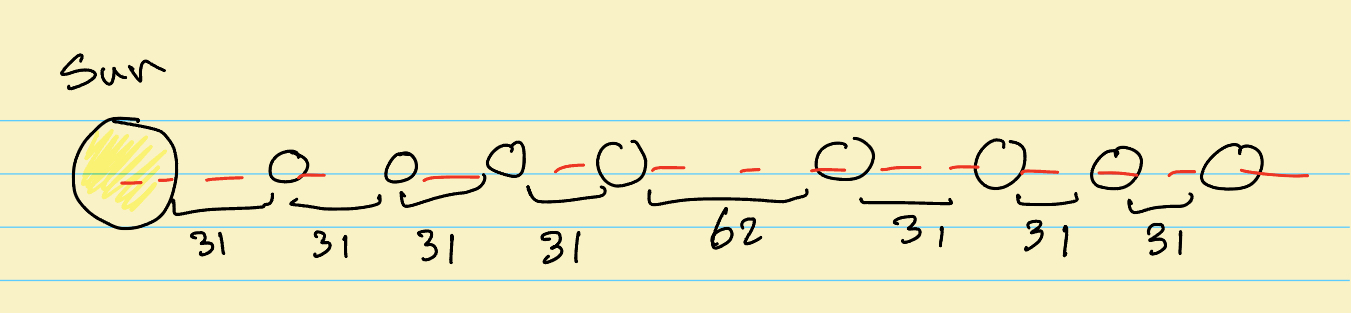 Sun
31 31 31 31 62 31 31 31